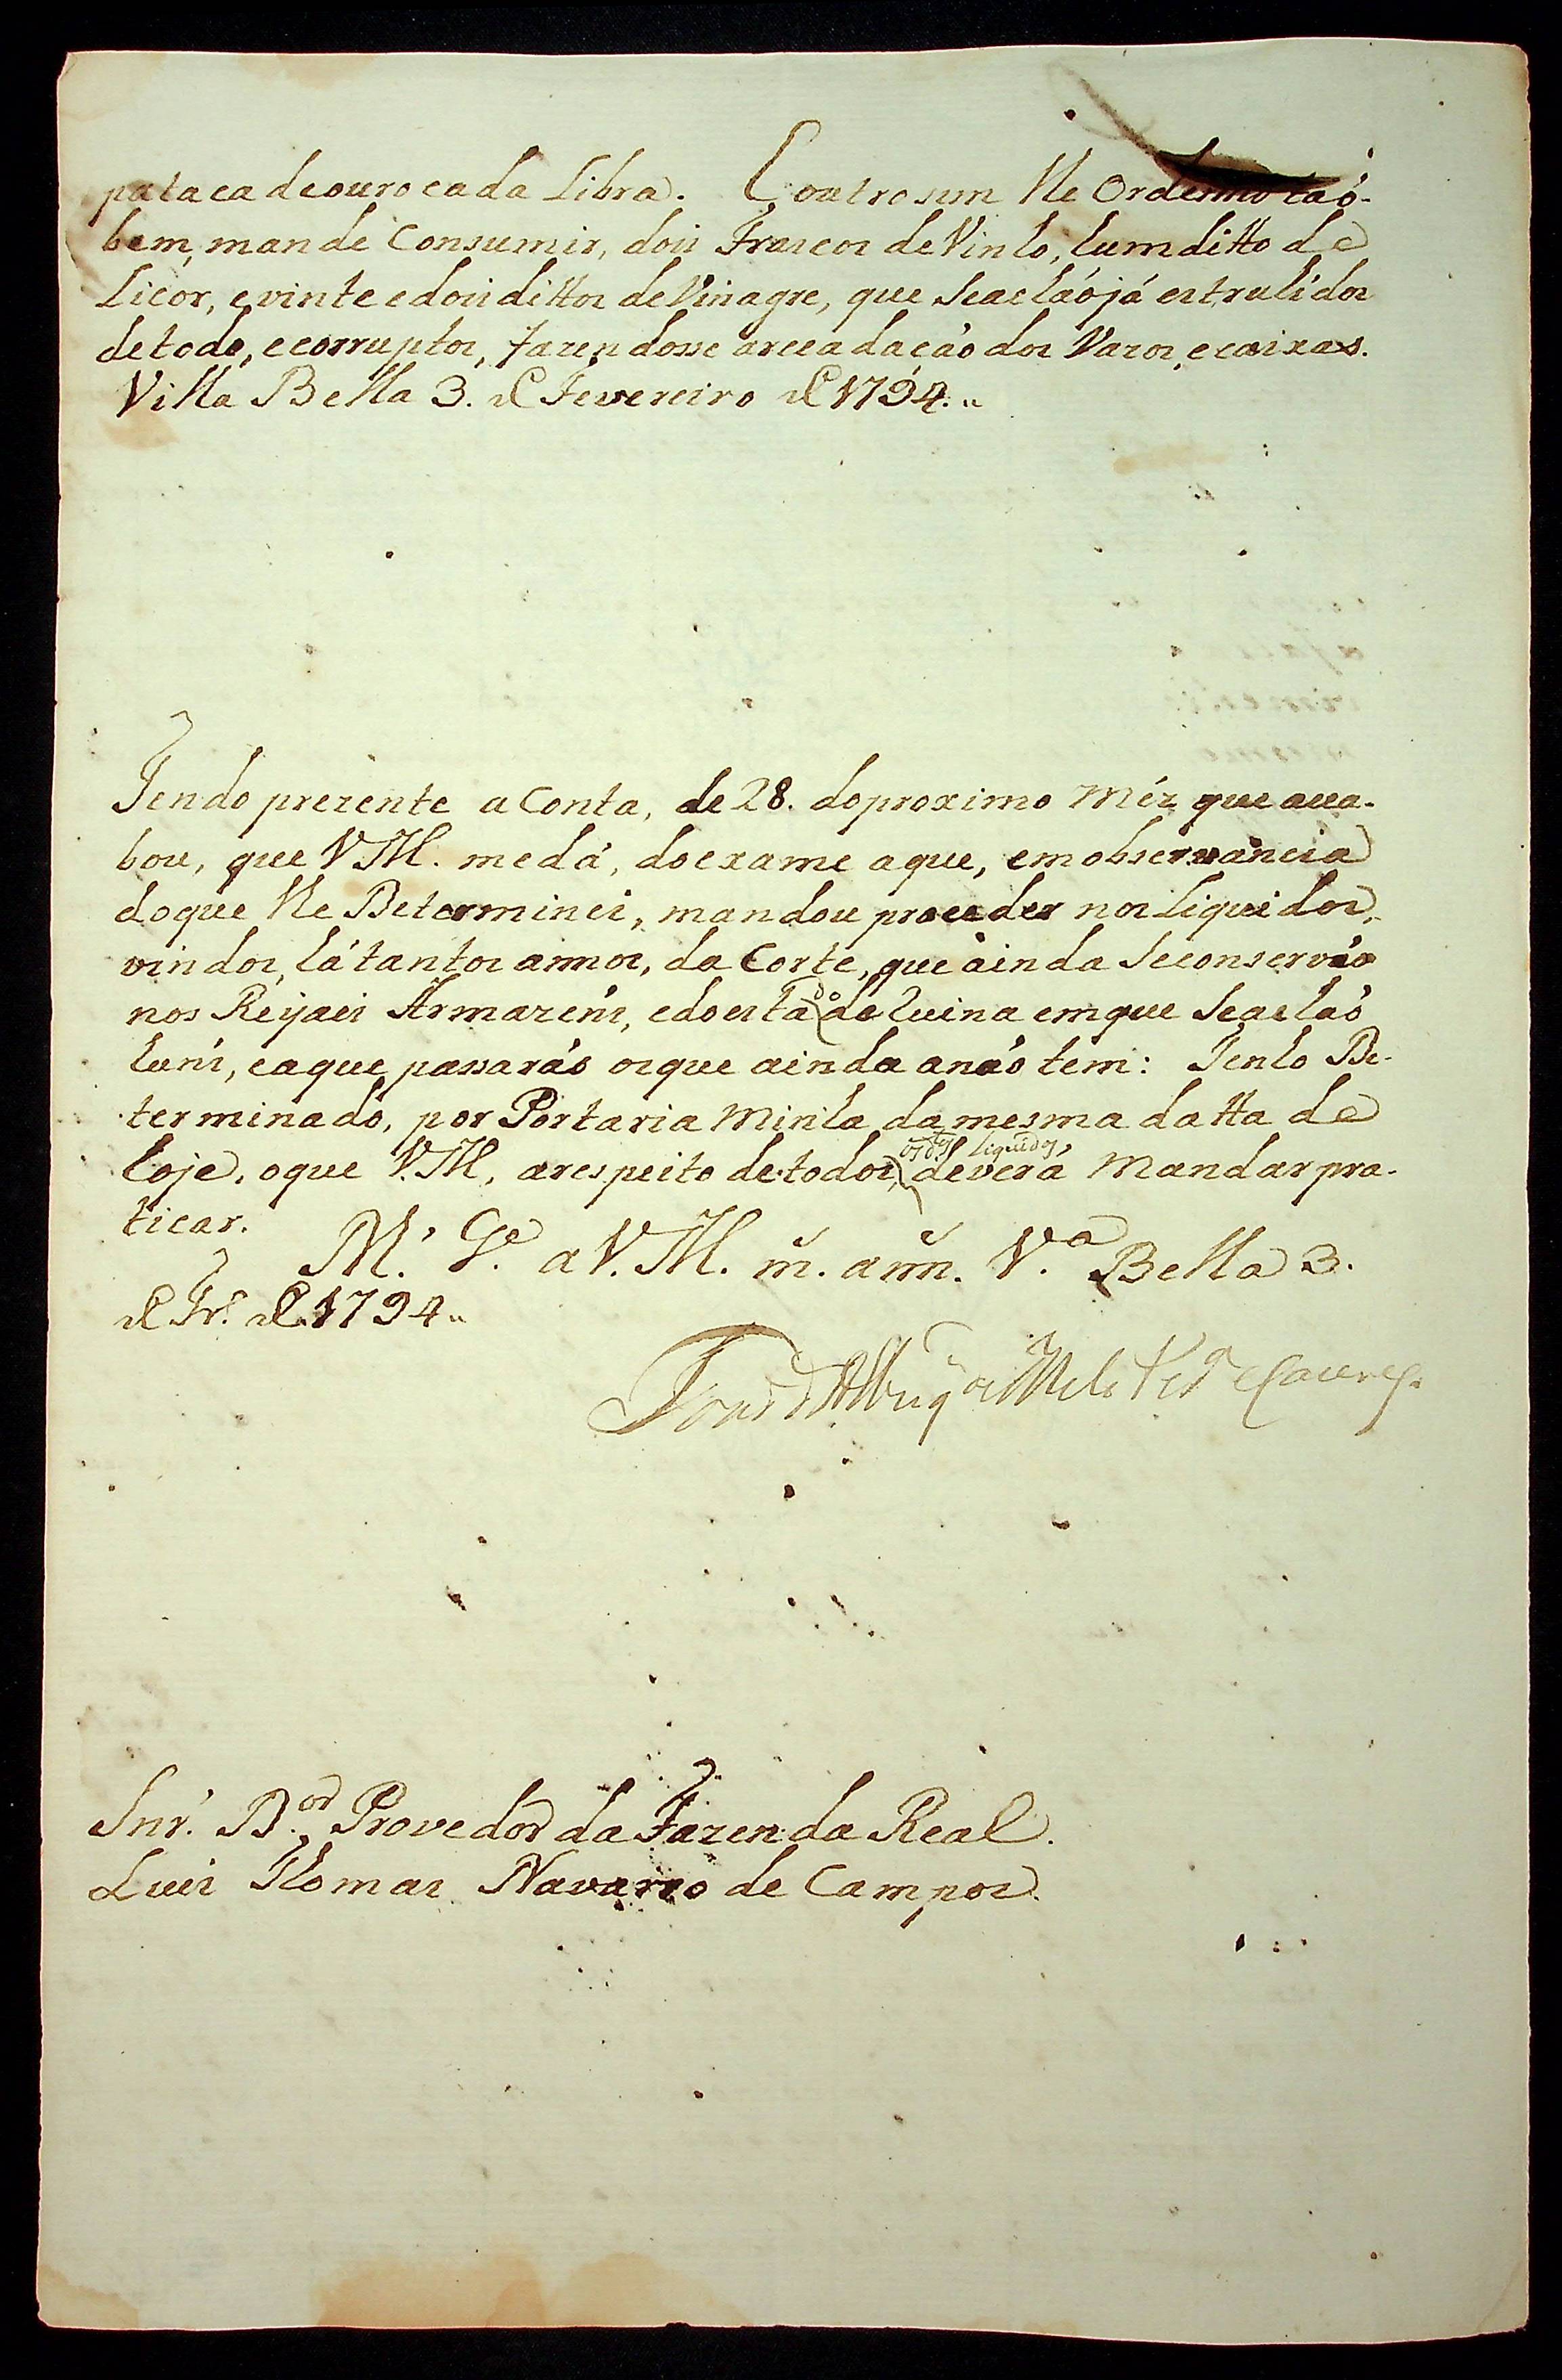 pataca deouro cada Libra. Eoutrosim lhe Ordenno taõ-
bem, mande Consumir, dois Frascos deVinho, hum ditto de
Licor, evinte edois dittos deVinagre, que Seachaõ já estruhidos
detodo, ecorruptos, fazendosse arecadaçaõ dos Vazos, ecaixas.
Villa Bella 3. de Fevereiro de 1794.
Tendo prezente aConta, de 28. doproximo Mêz que aca-
bou, que VM. medá, doexame aque, emobservancia
doque lhe Determinei, mandou proceder nos Liquidos,
vindos, hátantos annos, da Corte, que ainda Seconservaõ
nos Reýaes Armazéns, edoestado deRuina emque Seachaõ
huns, eaque passaráõ osque ainda anaõ tem: Tenho De-
terminado, por Portaria Minha damesma datta de
hoje, oque V.M, arespeito detodos os dos Liquidos, deverá Mandar pra-
ticar. N.S. Ge. a V.M. m. ann. V.a Bella 3.
de Fr.o de 1794
João d'Albuq.e de Mello Per.a e Caceres.
Snr. D.or Provedor da Fazenda Real.
Luis Thomas Navarro de Campos.